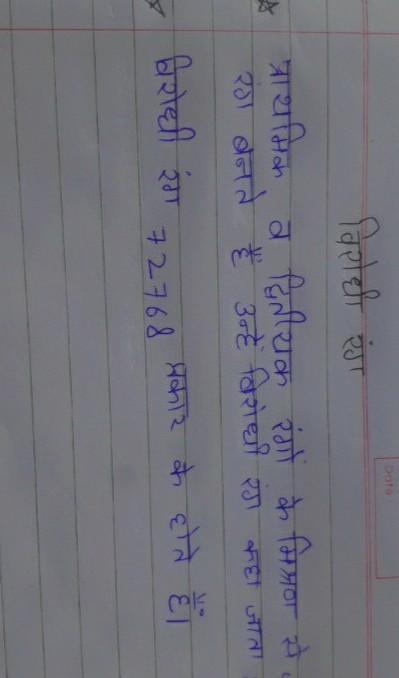 Date
विरोधी रंग
प्राथमिक व द्वितीयक रंगों के मिश्रण से
रंग बनते हैं उन्हें विरोधी रंग कहा जाता
विरोधी रंग 72768 प्रकार के होते हैं।